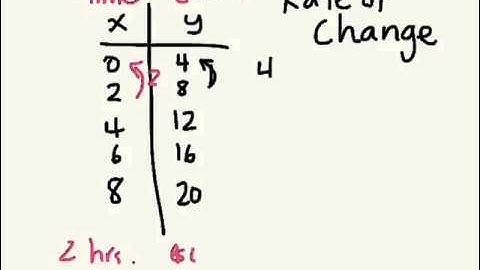 Rate of
Change
x y
0 4
2 8
4 12
6 16
8 20
2
4
2 hrs.